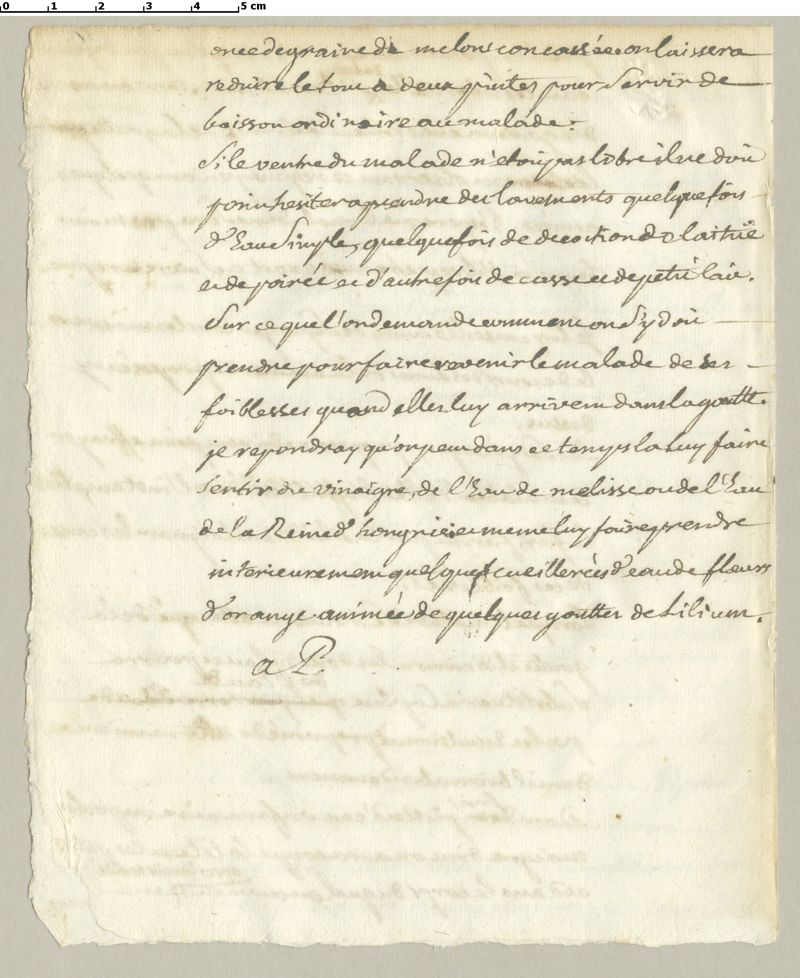 0 1 2 3 4 5 cm
once de graine de melons concassée. on laissera
reduire le tout a deux pintes pour servir de
boisson ordinaire au malade.
Si le ventre du malade n'etoit pas libre il ne doit
point hesiter a prendre des lavements quelquefois
d'Eau simple, quelquefois de decoction de laituë
et de poirée et d'autrefois de casse et de petit lait.
Sur ce que l'on demande comment on s'y doit
prendre pour faire revenir le malade de ses
foiblesses quand elles luy arrivent dans la goutte.
je repondray qu'on peut dans ce temps la luy faire
sentir du vinaigre, de l'Eau de melisse ou de l'Eau
de la Reine d'hongrie et meme luy faire prendre
interieurement quelques cueillerées d'eau de fleurs
d'orange animée de quelques gouttes de Lilium.
a P.